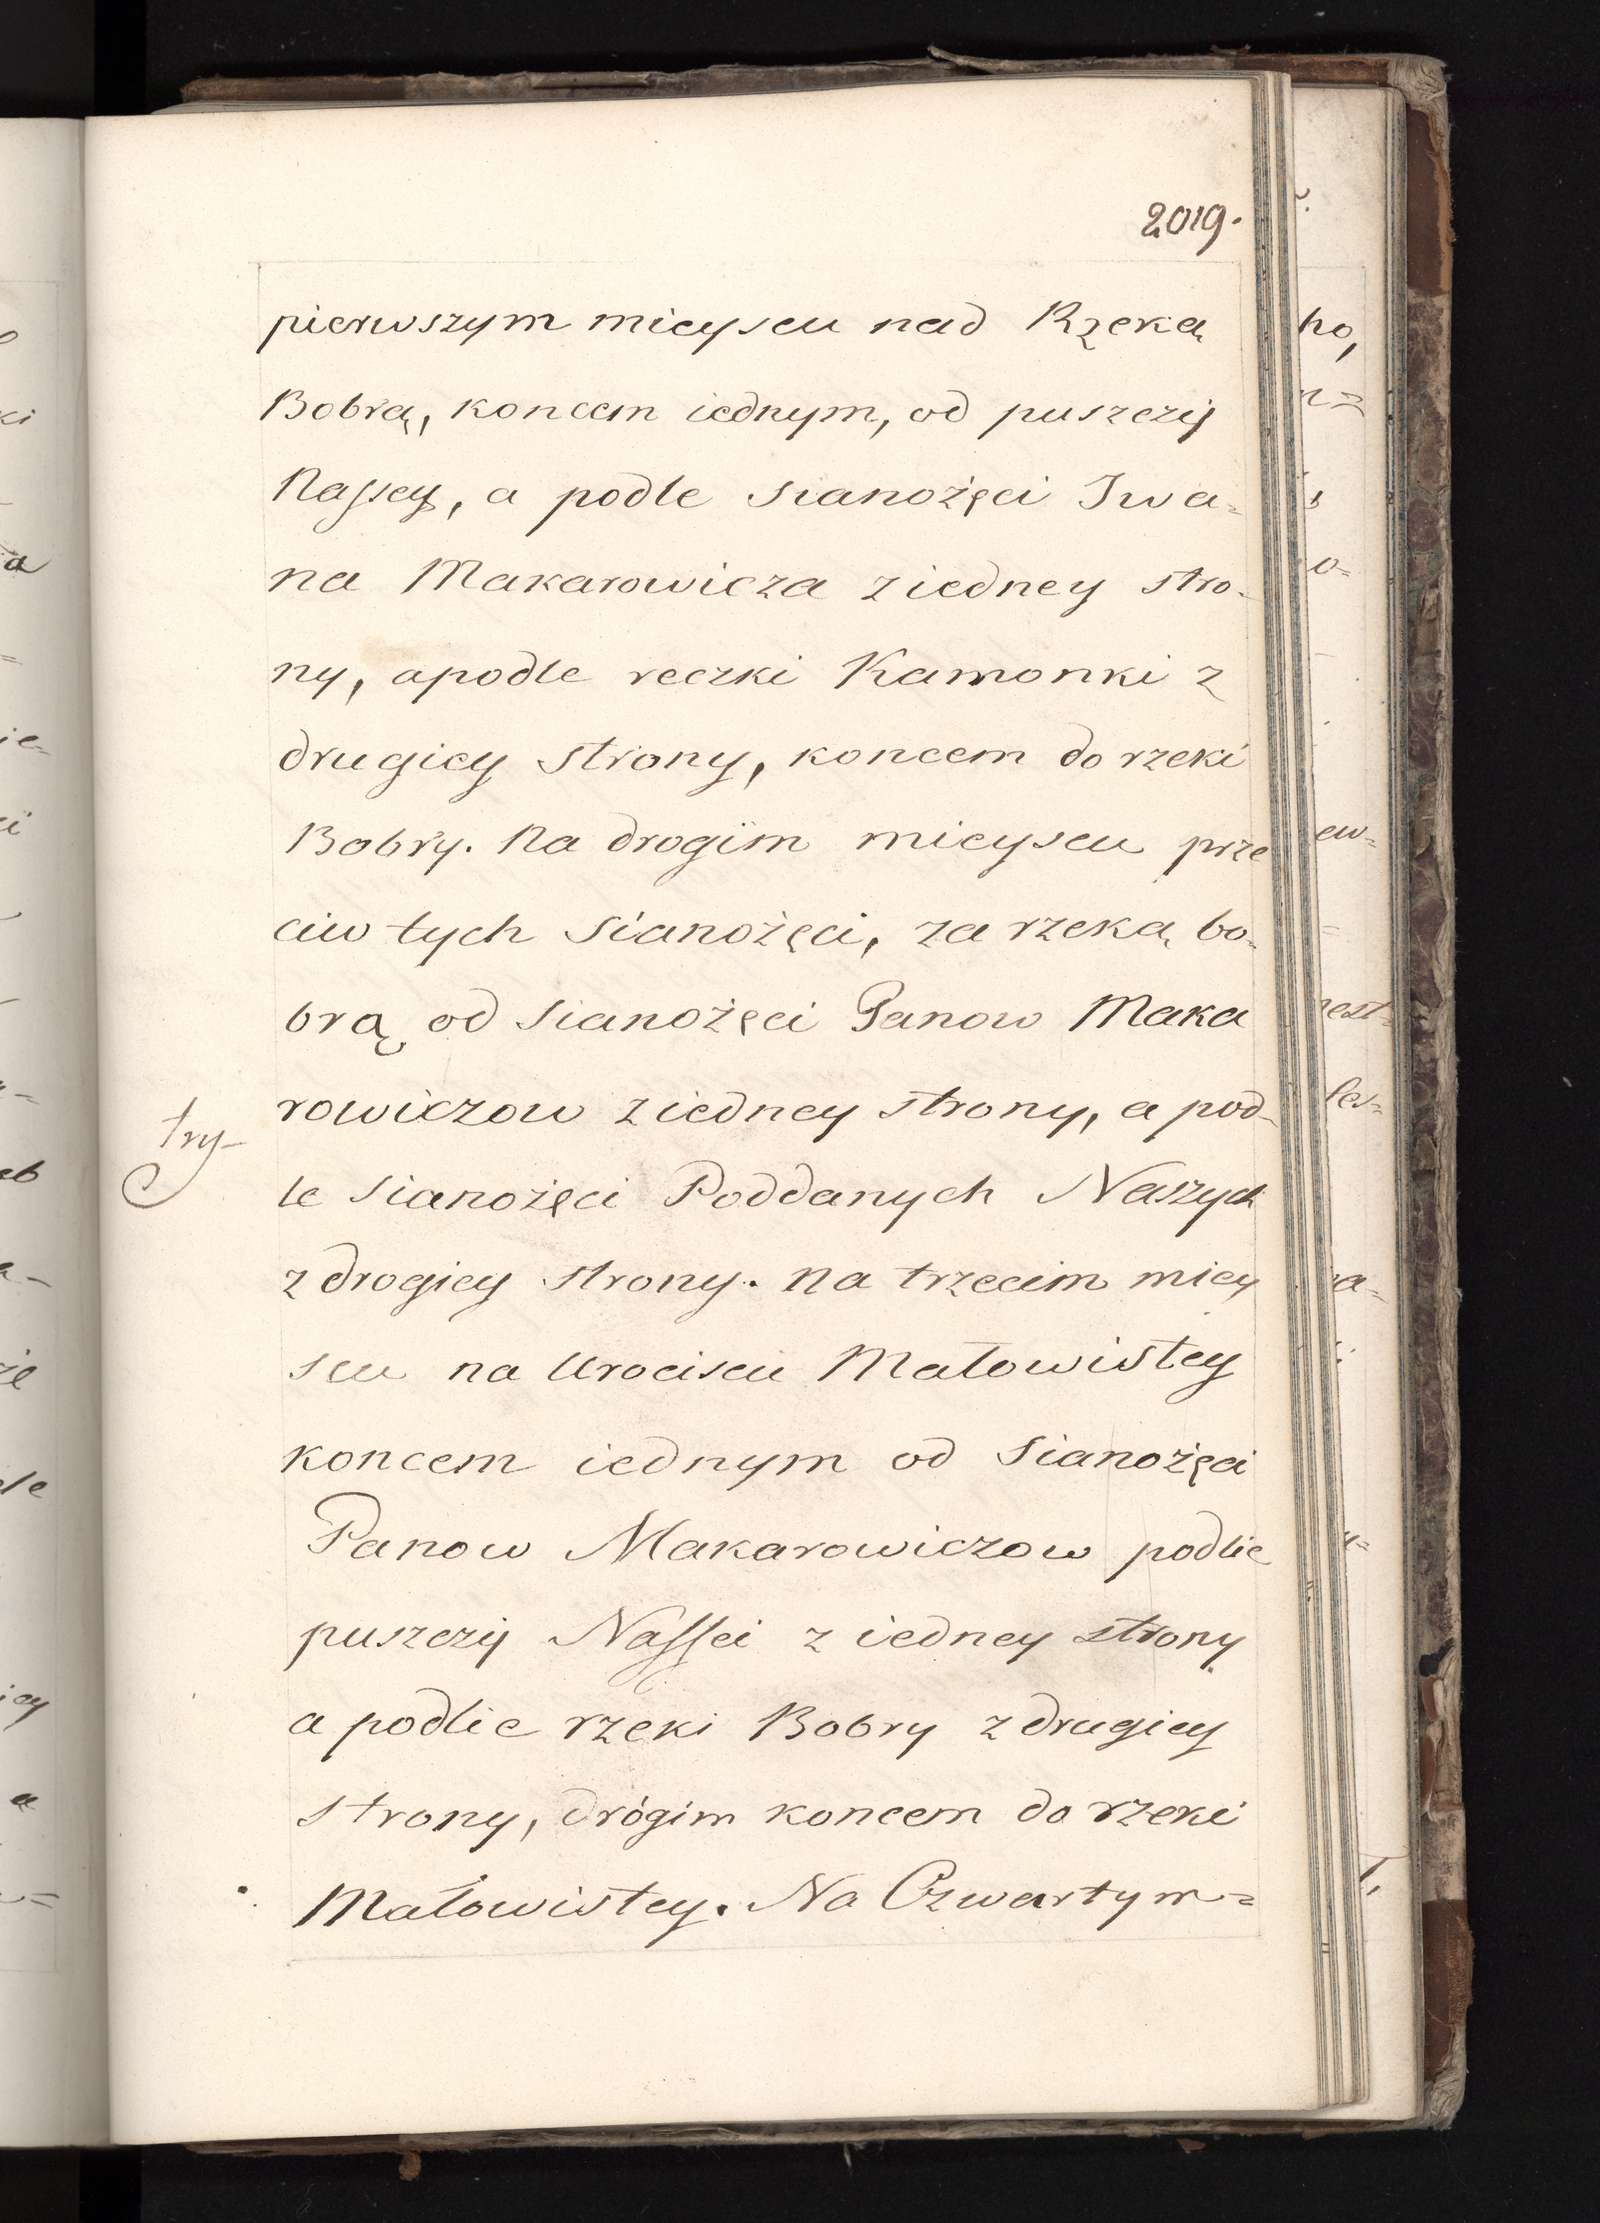 2019.
pierwszym mieyscu nad Rzeką
Bobrą, koncem iednym, od puszczÿ
Nassey, a podle sianożęci Iwa=
na Makarowicza z iedney stro-
ny, apodle reczki Kamonki z
drugiey strony, koncem do rzeki
Bobry. Na drogim mieyscu prze
ciw tych Sianożęci, za rzeką bo-
brą od sianożęci Panow Maka
rowiczow z iedney strony, a pod-
try-
le sianożęci Poddanych Naszych
z drogiey strony. Na trzecim miey
scu na Urociscu Małowistey
koncem iednym od Sianożęci
Panow Makarowiczow podlie
puszczÿ Nassei z iedney strony
a podlie rzeki Bobry z drugiey
strony, drógim koncem do rzeki
Małowistey. Na Czwartym=